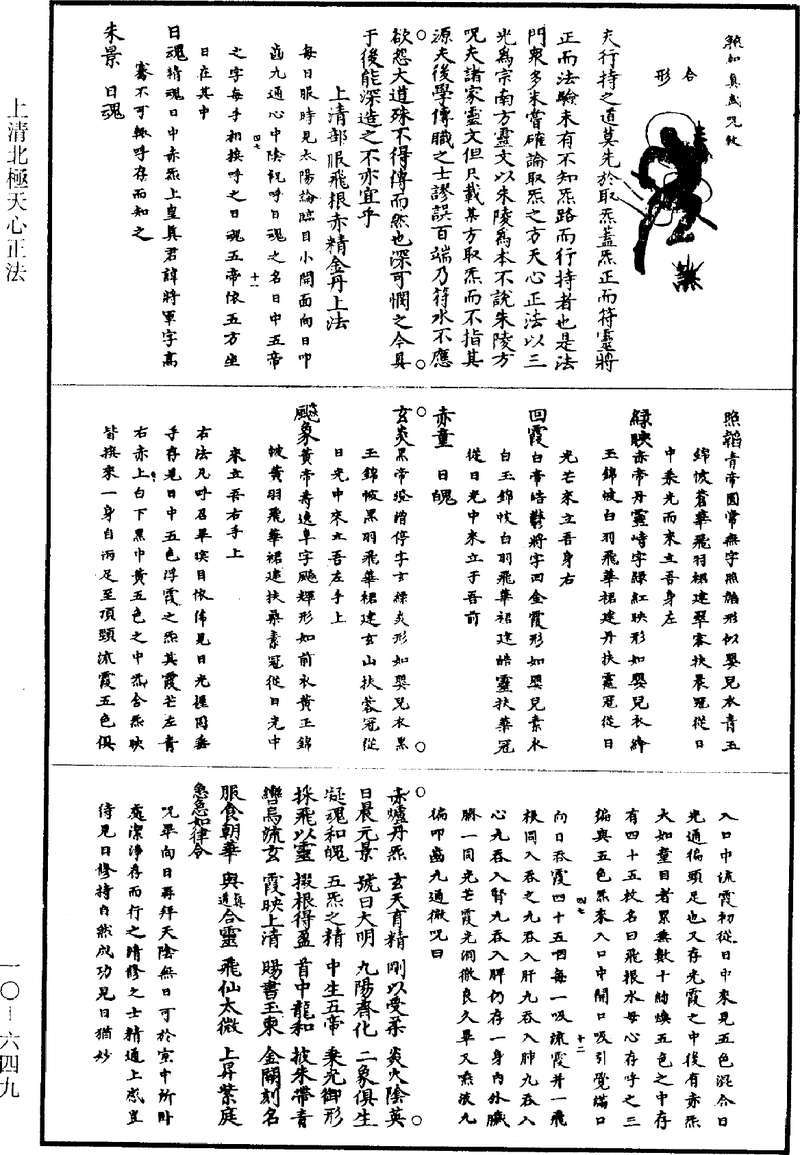 上清北極天心正法
一〇—六四九
執如真武咒敕
合
形
夫行持之道莫先於取炁蓋炁正而符靈將
正而法驗未有不知炁路而行持者也是法
門衆多未嘗確論取炁之方天心正法以三
光爲宗南方靈文以朱陵爲本不說朱陵方
呪夫諸家靈文但只載某方取炁而不指其
源夫後學傳職之士謬誤百端乃符水不應
欲怨大道殊不得傳而然也深可憫之今具
于後能深造之不亦宜乎
上清部服飛根赤精金丹上法
每日服時見太陽論臨目小開面向日叩
齒九通心中陰祝呼日魂之名日中五帝
之字每手相挨呼之日魂五帝依五方坐
日在其中
日魂特魂日中赤炁上皇真君諱將軍字高
審不可輒呼存而知之
朱景 日魂
照韜青帝圓常無字照韜形似嬰兒衣青玉
錦帔蒼華飛羽裙建翠容扶晨冠從日
中乘光而來立吾身左
綠映赤帝丹靈峙字綠紅映形如嬰兒衣絳
玉錦帔白羽飛華裙建丹扶靈冠從日
光芒來立吾身右
回霞白帝皓鬱將字回金霞形如嬰兒素衣
白玉錦帔白羽飛華裙建皓靈扶華冠
從日光中來立于吾前
赤童 日魄
玄炎黑帝澄增停字玄綠炎形如嬰兒衣黑
玉錦帔黑羽飛華裙建玄山扶蓉冠從
日光中來立吾左手上
飈象黃帝壽逸阜字飈輝形如前衣黃玉錦
帔黃羽飛華裙建扶桑素冠從日光中
來立吾右手上
右法凡呼召畢瞑目依俙見日光握固垂
手存見日中五色浮霞之炁其霞芒左青
右赤上白下黑中黃五色之中炁含炁映
皆挨來一身自兩足至頂頸流霞五色俱
入口中流霞初從日中來見五色混合日
光通徧頭足也又存光霞之中後有赤炁
大如童目者累無數十的煥五色之中存
有四十五枚名曰飛根水母心存呼之三
徧與五色炁來入口中開口吸引覺滿口
向日吞霞四十五咽每一吸流霞并一飛
根同入吞之九吞入肝九吞入肺九吞入
心九吞入腎九吞入脾仍存一身內外臟
腑一同光芒霞光洞徹良久畢又燕液九
徧叩齒九通微呪曰
赤爐丹炁 玄天育精 剛以受柔 炎火陰英
日晨元景 號曰大明 九陽齊化 二象俱生
凝魂和魄 五炁之精 中生五帝 乘光御形
採飛以靈 掇根得盈 首中龍和 披朱帶青
轡烏流玄 霞映上清 賜書玉東 金闕刻名
服食朝華 與真合靈 飛仙太微 上昇紫庭
急急如律令
呪畢向日再拜天陰無日可於室中所卧
處潔淨存而行之精修之士精通上感豈
待見日修持自然成功見日猶妙